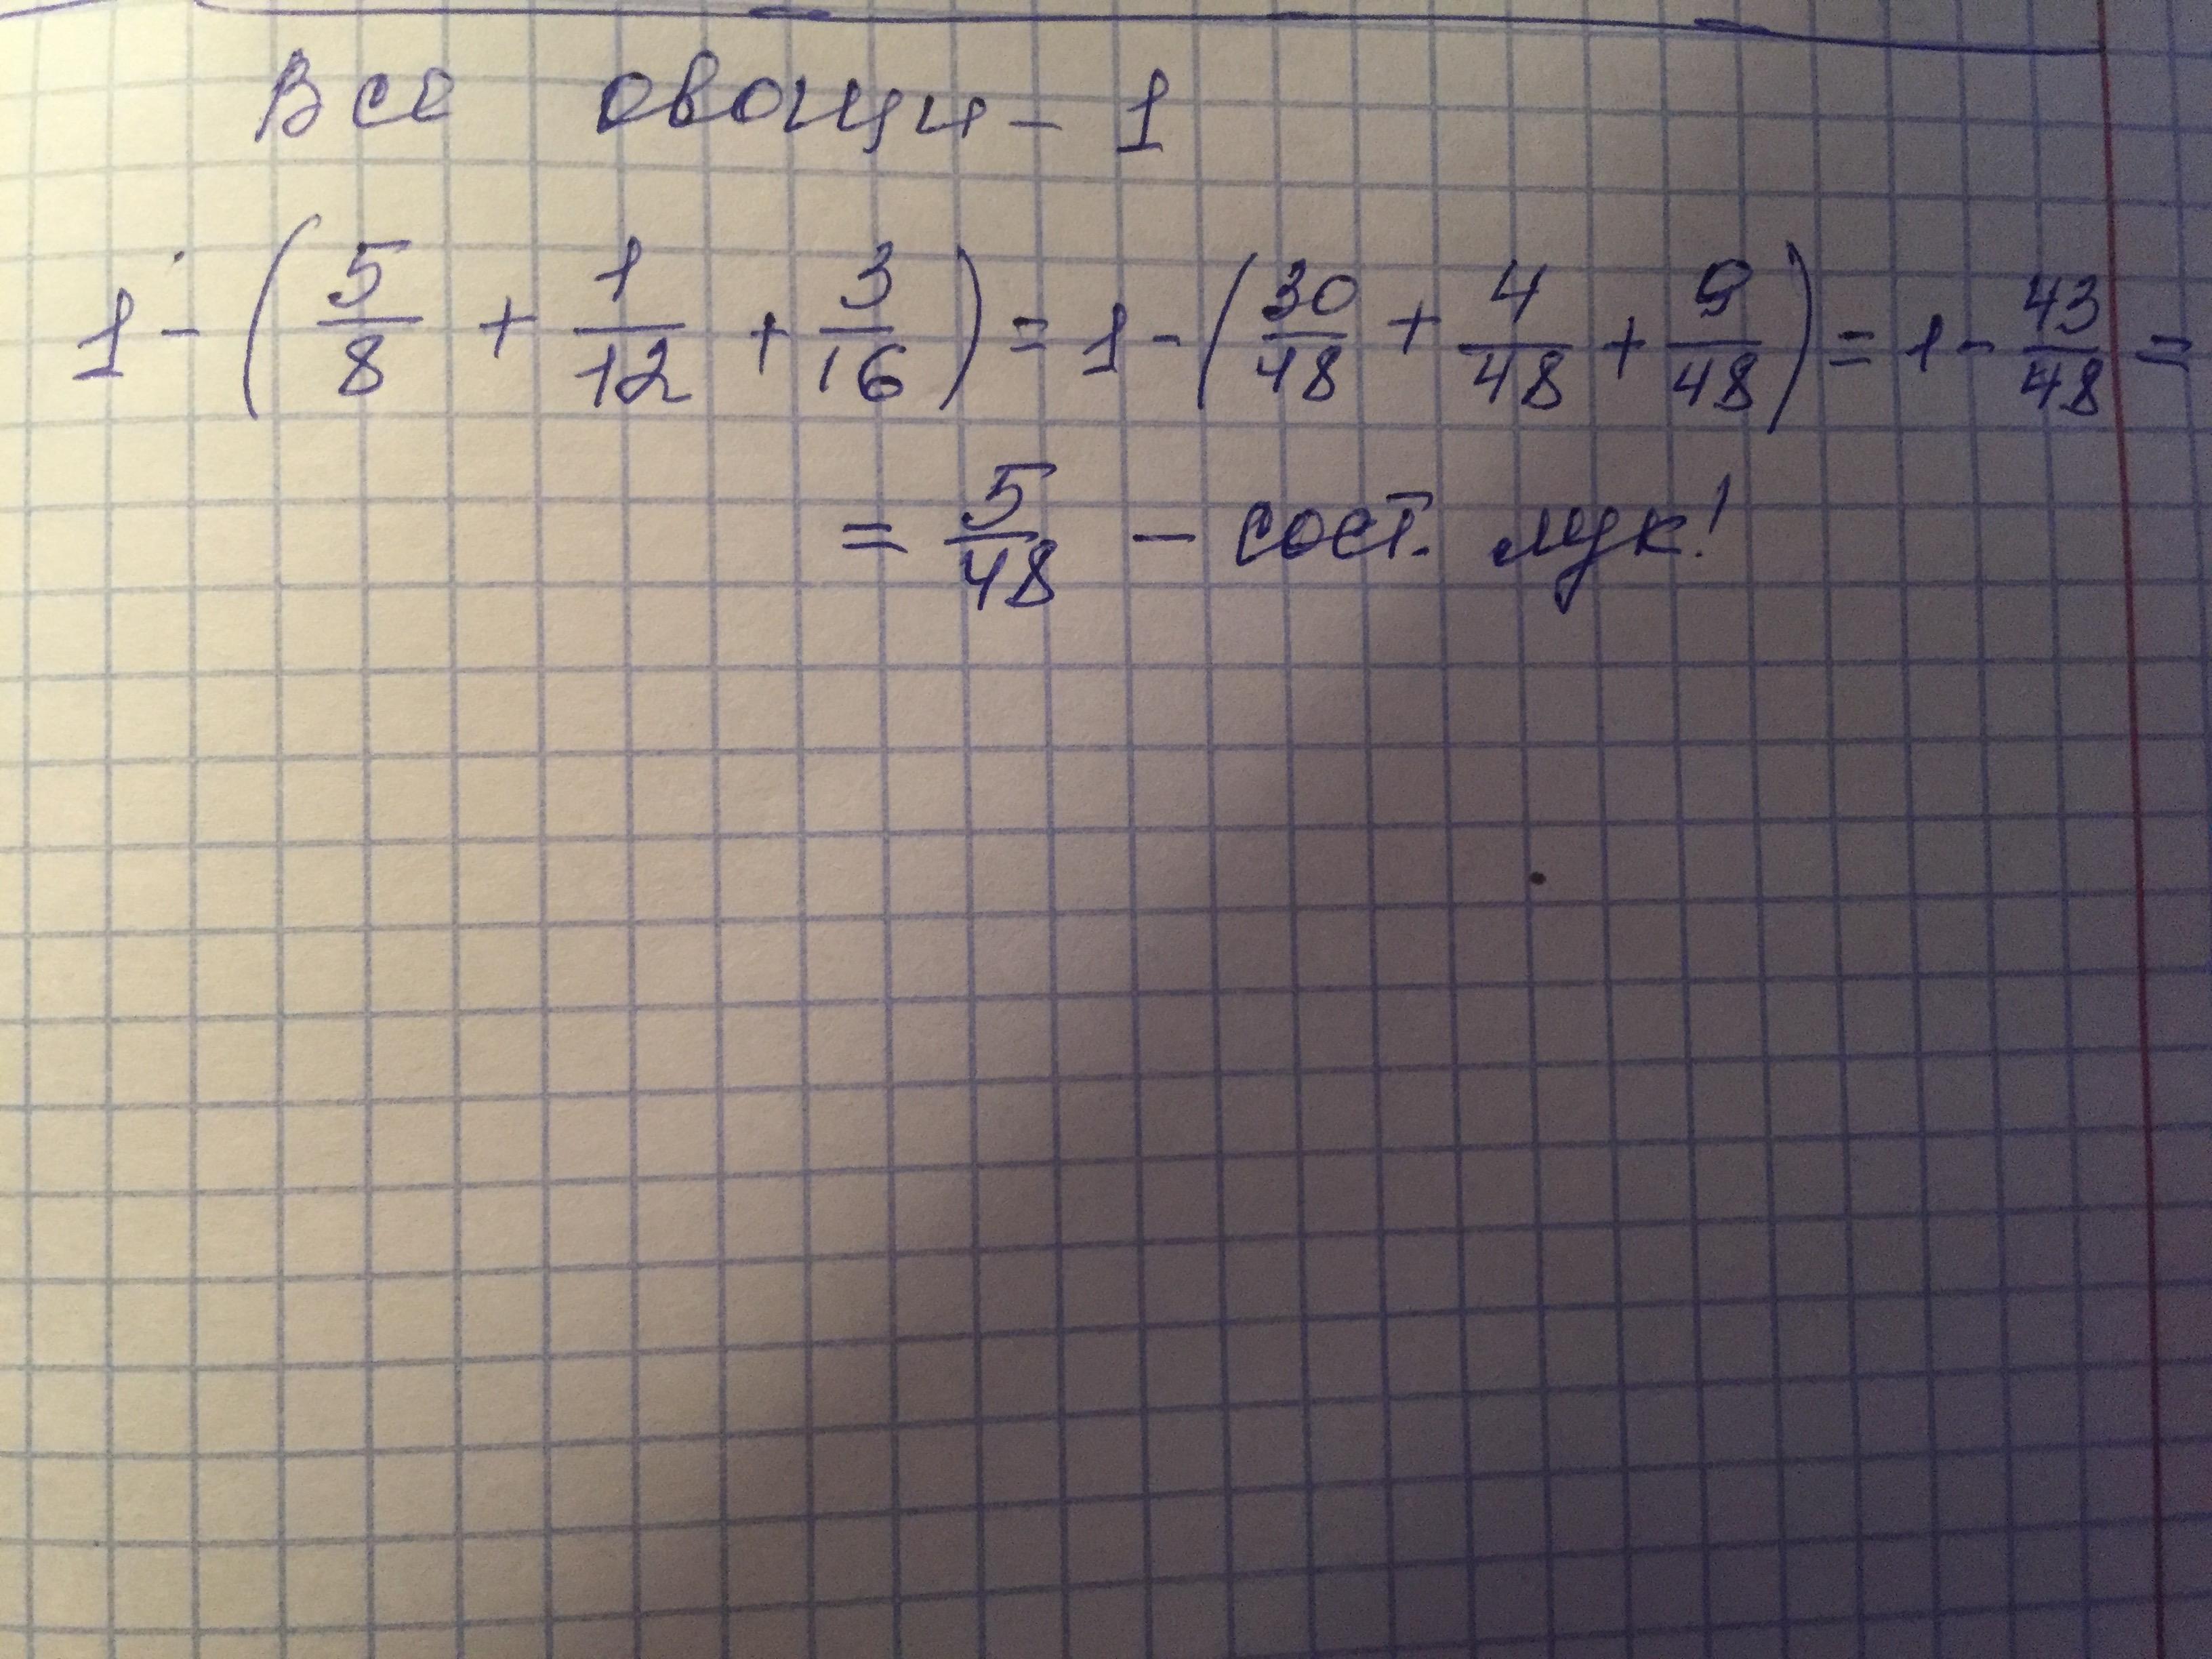 Все овощи - 1
1 - (5/8 + 1/12 + 3/16) = 1 - (30/48 + 4/48 + 9/48) = 1 - 43/48 =
= 5/48 - сост. лук!